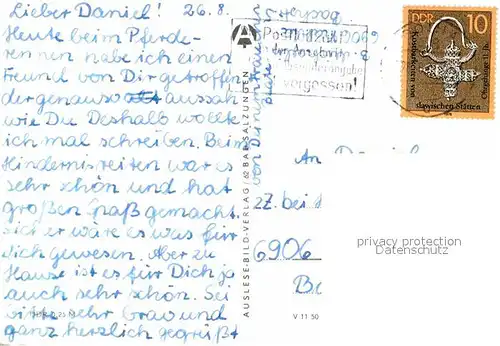 Lieber Daniel! 26.8.
Heute beim Pferde-
rennen habe ich einen
Freund von Dir getroffen
der genauso aussah
wie Du Deshalb wollte
ich mal schreiben. Beim
Hindernisreiten war es
sehr schön und hat
großen Spaß gemacht.
sicher wäre es was für
dich gewesen. Aber zu
Hause ist es für Dich ja
auch sehr schön. Sei
bitte sehr brav und
ganz herzlich gegrüßt
von Deinem
AUSLESE-BILD-VERLAG / 62 BAD SALZUNGEN
V 11 50
Postleitzahl
nicht
vergessen!
DDR 10
Kostbarkeiten von
slawischen Stätten
Ohrgehänge 11. Jh.
An
27. bei
6906
privacy protection
Datenschutz